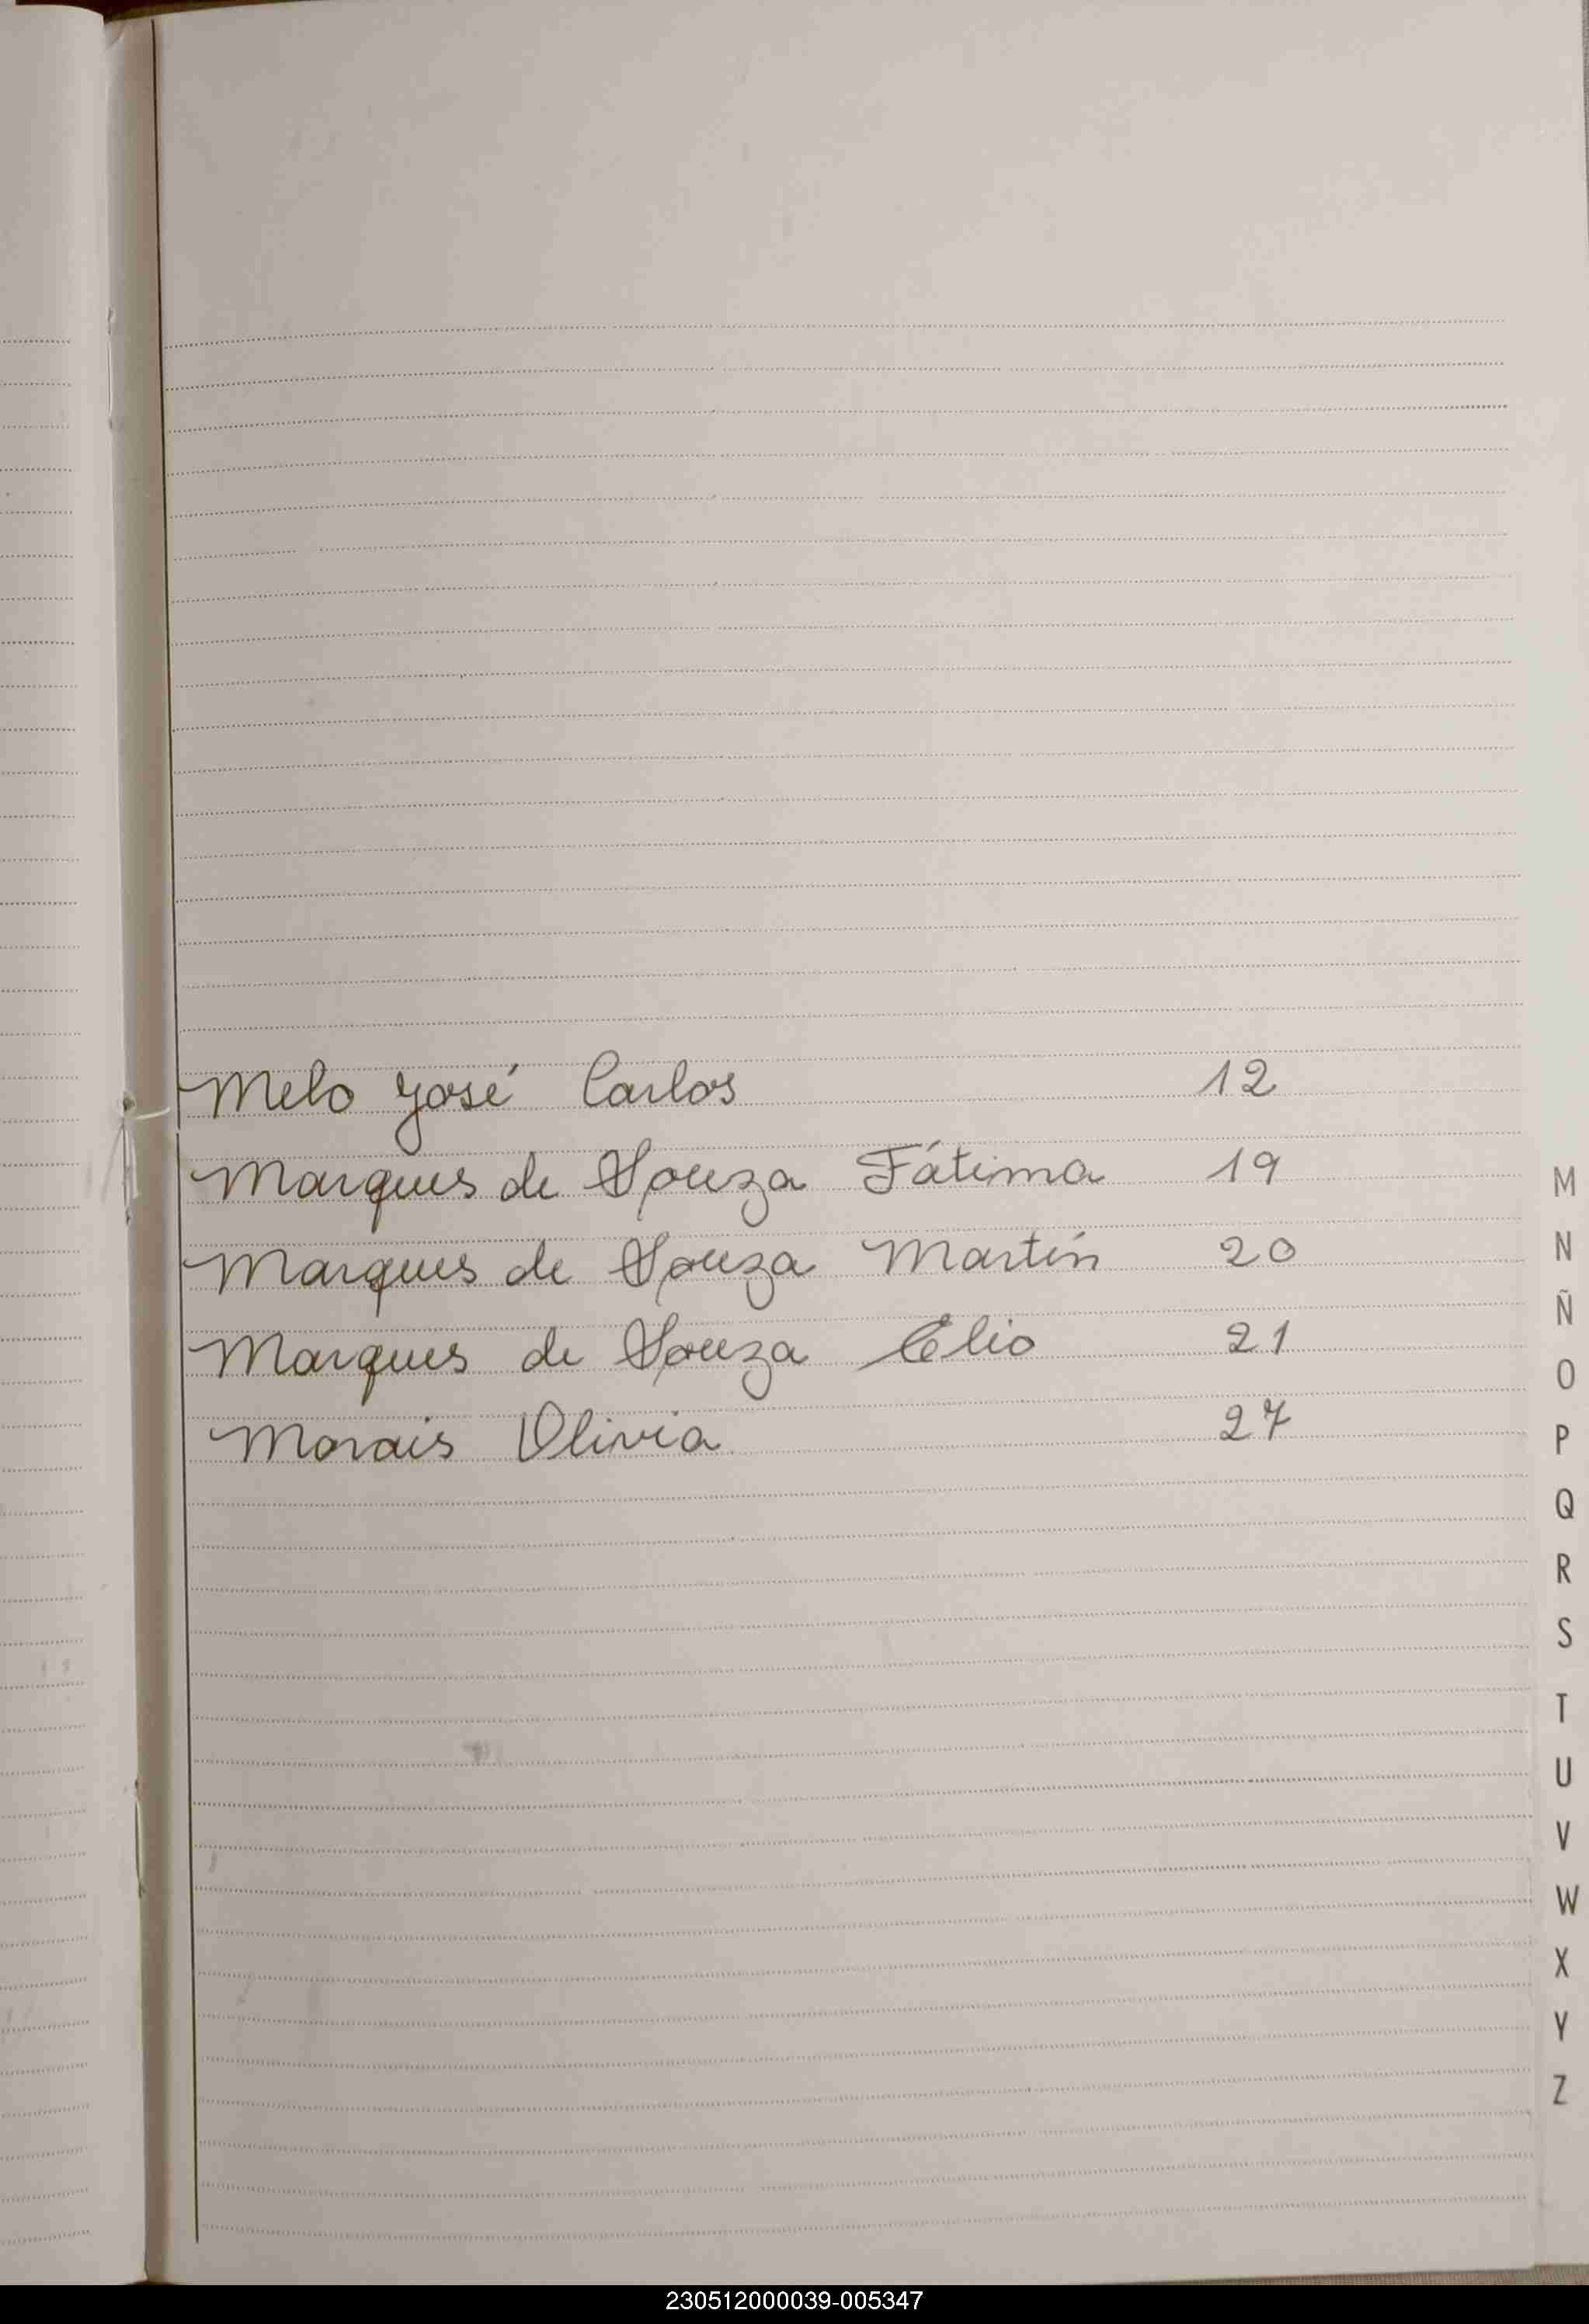 Melo José Carlos 12
Marques de Souza Fátima 19
Marques de Souza Martín 20
Marques de Souza Elio 21
Morais Olivia 27
M
N
Ñ
O
P
Q
R
S
T
U
V
W
X
Y
Z
230512000039-005347